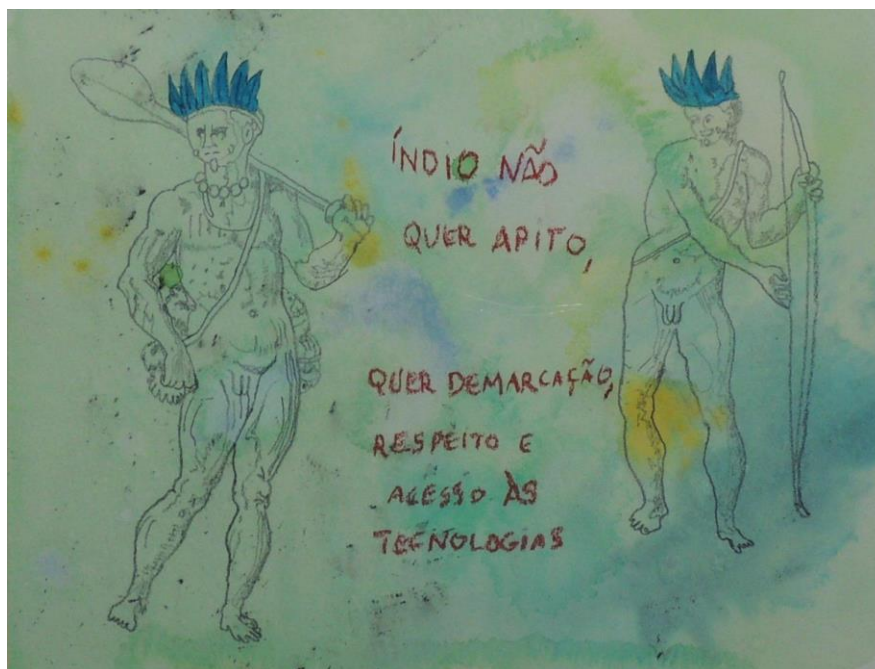 ÍNDIO NÃO
QUER APITO,
QUER DEMARCAÇÃO,
RESPEITO E
ACESSO ÀS
TECNOLOGIAS